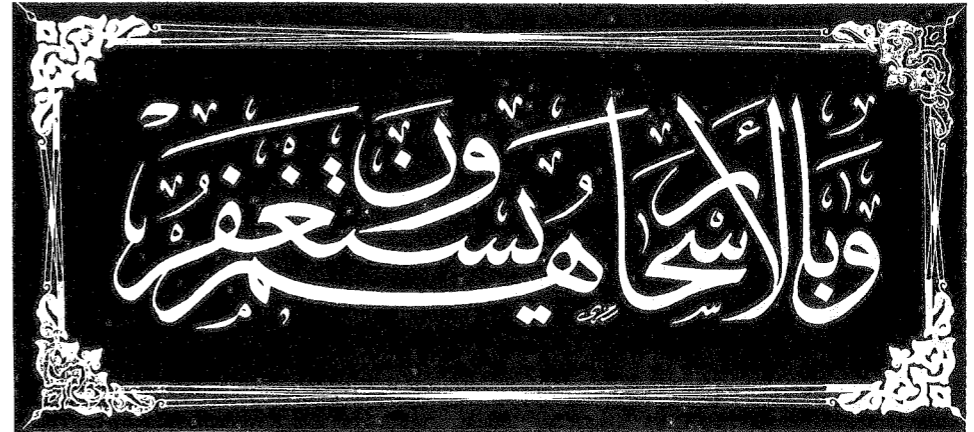 وَبِالْأَسْحَارِ هُمْ يَسْتَغْفِرُونَ